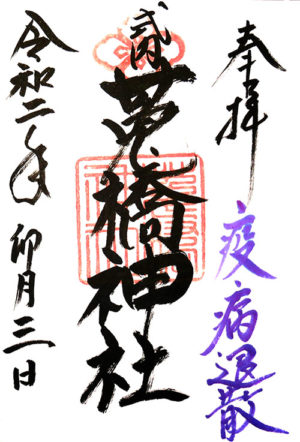 奉拝
疫病退散
式内
菟橋神社
令和二年
卯月三日